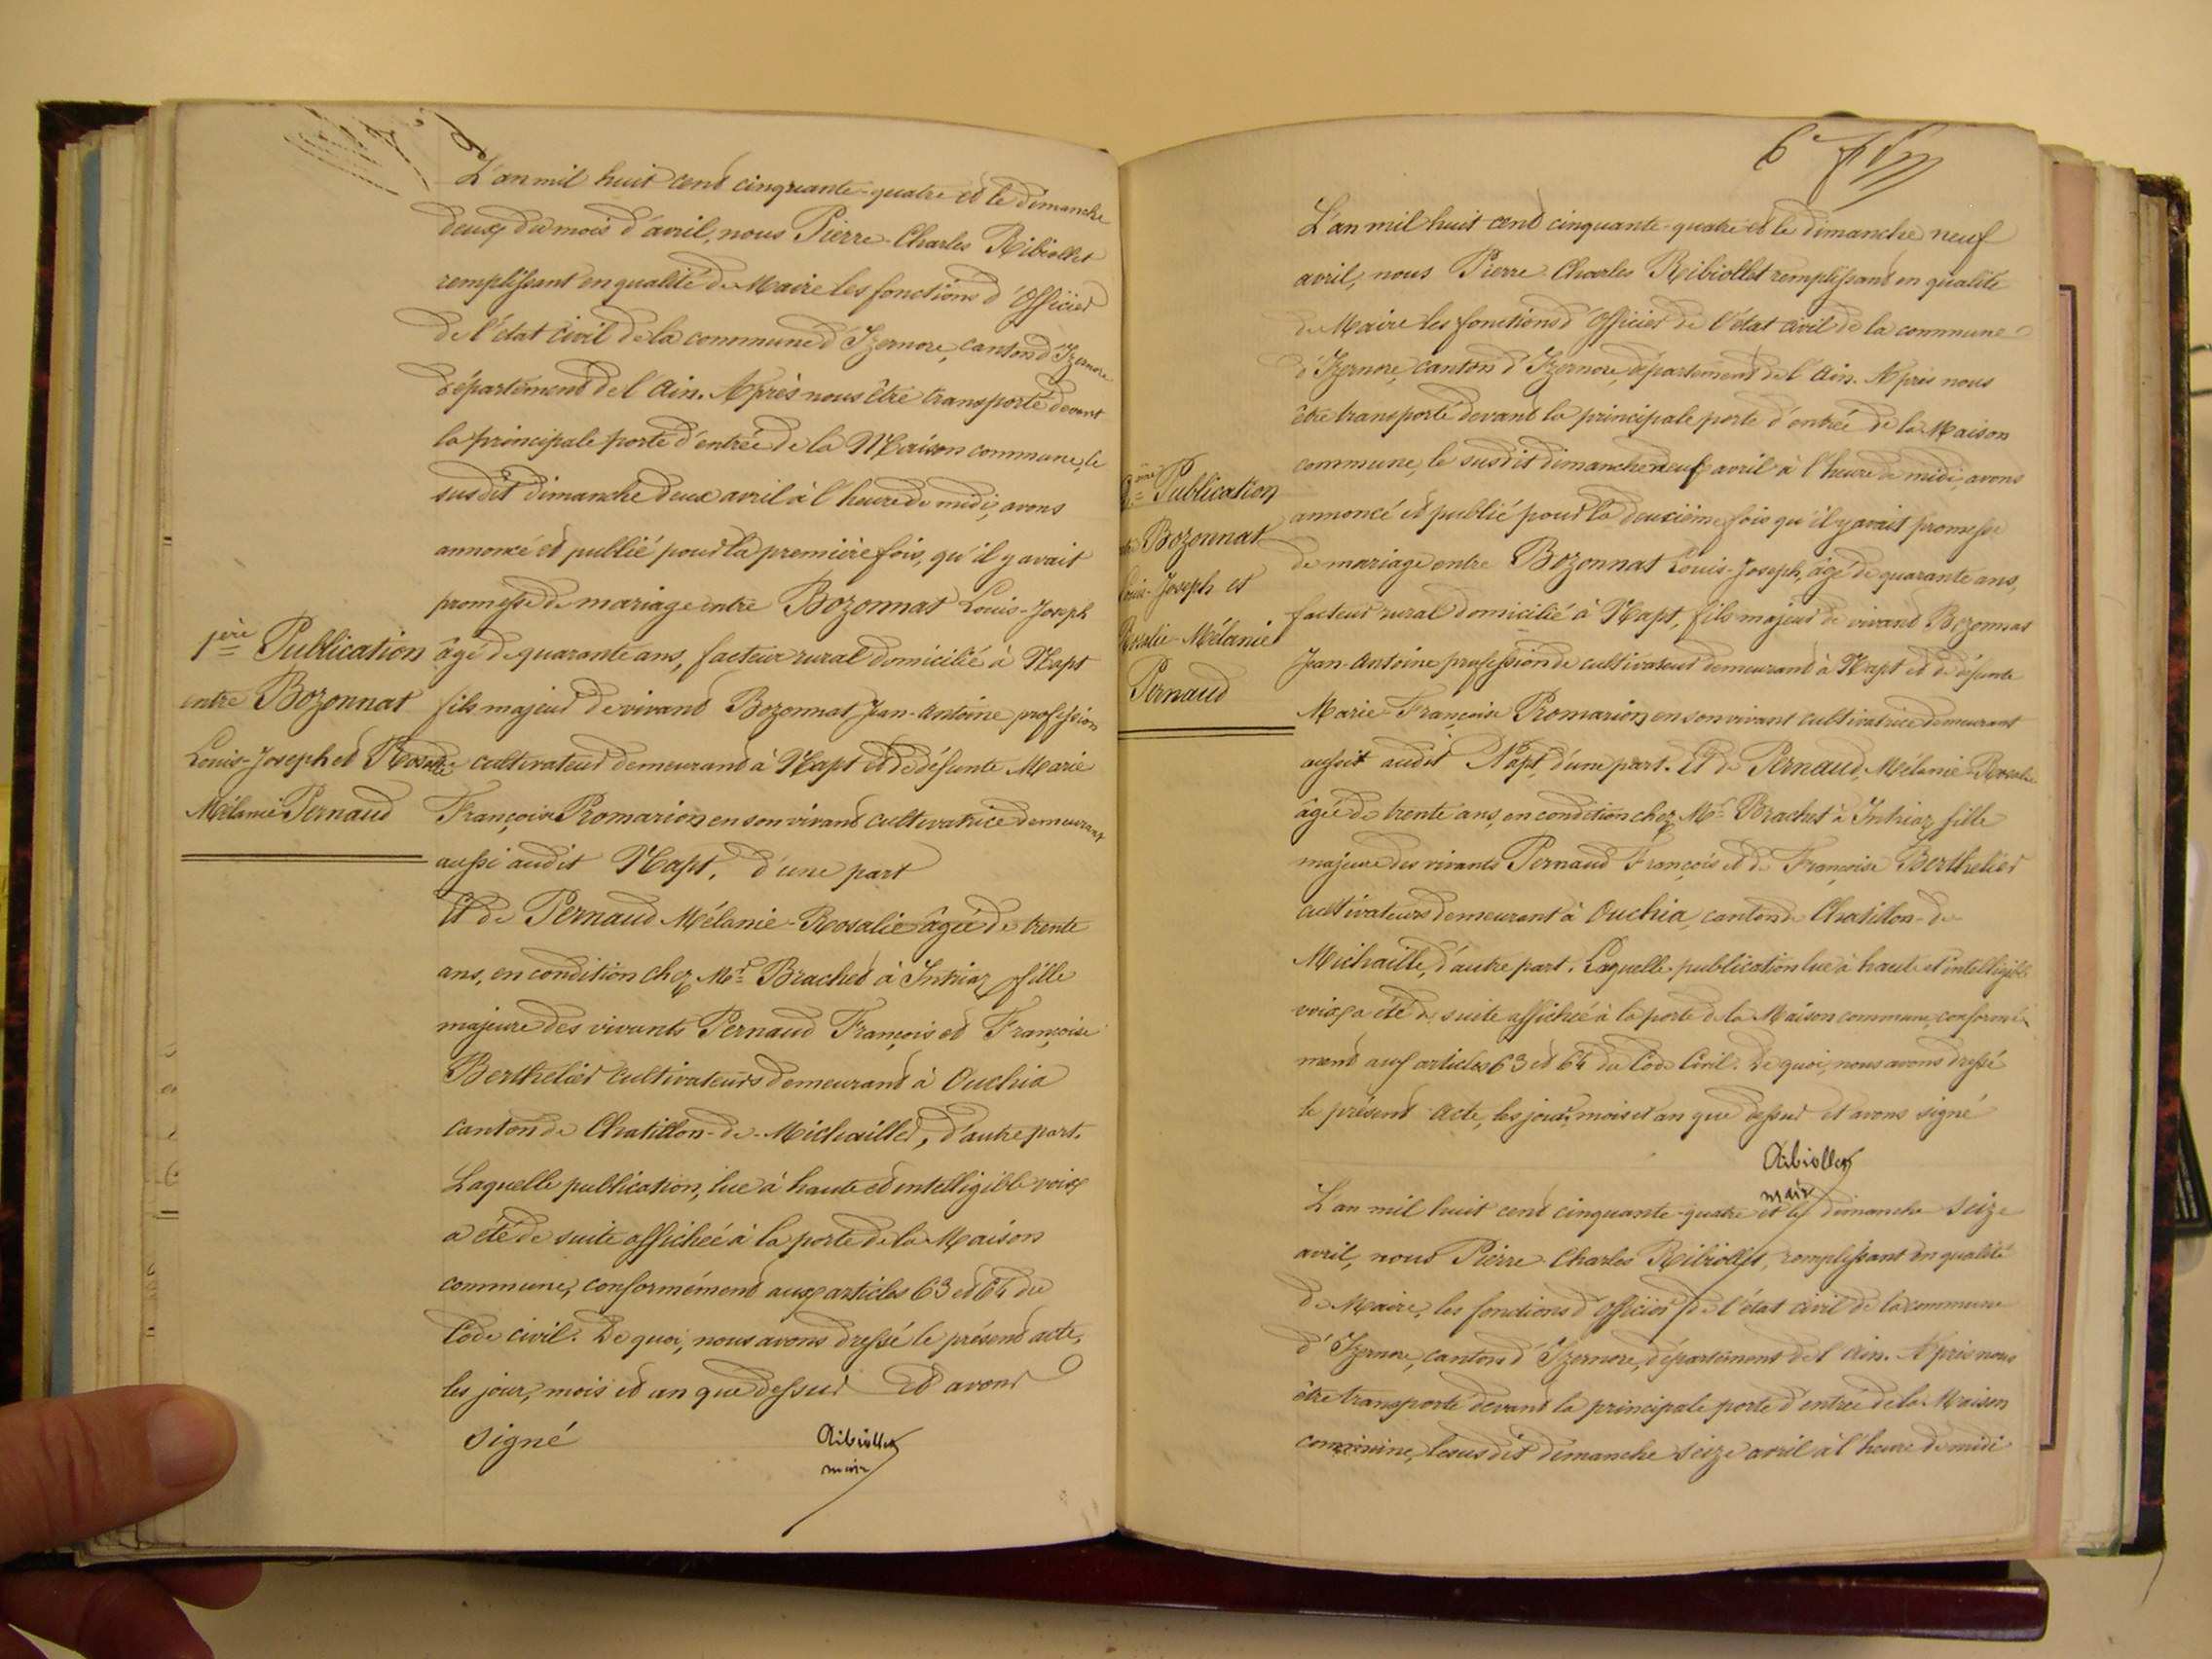 L'an mil huit cent cinquante-quatre et le dimanche
deux du mois d'avril, nous Pierre-Charles Ribiollet
remplissant en qualité de Maire les fonctions d'Officier
de l'état civil de la commune d'Izernore, canton d'Izernore
département de l'Ain. Après nous être transporté devant
la principale porte d'entrée de la Maison commune, le
susdit dimanche deux avril à l'heure de midi, avons
annoncé et publié pour la première fois, qu'il y avait
promesse de mariage entre Bozonnat Louis-Joseph
âgé de quarante ans, facteur rural domicilié à Napt
fils majeur de vivant Bozonnat Jean-Antoine profession
de cultivateur demeurant à Napt et de défunte Marie
Françoise Promarion en son vivant cultivatrice demeurant
aussi audit Napt, d'une part
Et de Pernaud Mélanie-Rosalie âgée de trente
ans, en condition chez Mr. Brachet à Intriaz fille
majeure des vivants Pernaud François et Françoise
Berthelier cultivateurs demeurant à Ouchia
canton de Chatillon-de-Michaille, d'autre part.
Laquelle publication, lue à haute et intelligible voix
a été de suite affichée à la porte de la Maison
commune, conformément aux articles 63 et 64 du
Code civil. De quoi, nous avons dressé le présent acte,
les jour, mois et an que dessus et avons
signé
Ribiollet
maire
1ère Publication
entre Bozonnat
Louis-Joseph et Rosalie
Mélanie Pernaud
6e
L'an mil huit cent cinquante-quatre et le dimanche neuf
avril, nous Pierre-Charles Ribiollet remplissant en qualité
de Maire les fonctions d'Officier de l'état civil de la commune
d'Izernore, canton d'Izernore, département de l'Ain. Après nous
être transporté devant la principale porte d'entrée de la Maison
commune, le susdit dimanche neuf avril à l'heure de midi, avons
annoncé et publié pour la deuxième fois qu'il y avait promesse
de mariage entre Bozonnat Louis-Joseph, âgé de quarante ans,
facteur rural domicilié à Napt, fils majeur de vivant Bozonnat
Jean-Antoine profession de cultivateur demeurant à Napt et de défunte
Marie-Françoise Promarion en son vivant cultivatrice demeurant
aussi audit Napt, d'une part. Et de Pernaud, Mélanie-Rosalie
âgée de trente ans, en condition chez Mr. Brachet à Intriaz, fille
majeure des vivants Pernaud François et de Françoise Berthelier
cultivateurs demeurant à Ouchia, canton de Chatillon-de-
Michaille, d'autre part. Laquelle publication lue à haute et intelligible
voix, a été de suite affichée à la porte de la Maison commune, conformé-
ment aux articles 63 et 64 du Code Civil. De quoi, nous avons dressé
le présent acte, les jour, mois et an que dessus et avons signé
Ribiollet
maire
2ème Publication
entre Bozonnat
Louis-Joseph et
Rosalie-Mélanie
Pernaud
L'an mil huit cent cinquante-quatre et le dimanche seize
avril, nous Pierre-Charles Ribiollet, remplissant en qualité
de Maire, les fonctions d'Officier de l'état civil de la commune
d'Izernore, canton d'Izernore, département de l'Ain. Après nous
être transporté devant la principale porte d'entrée de la Maison
commune, le susdit dimanche seize avril à l'heure de midi